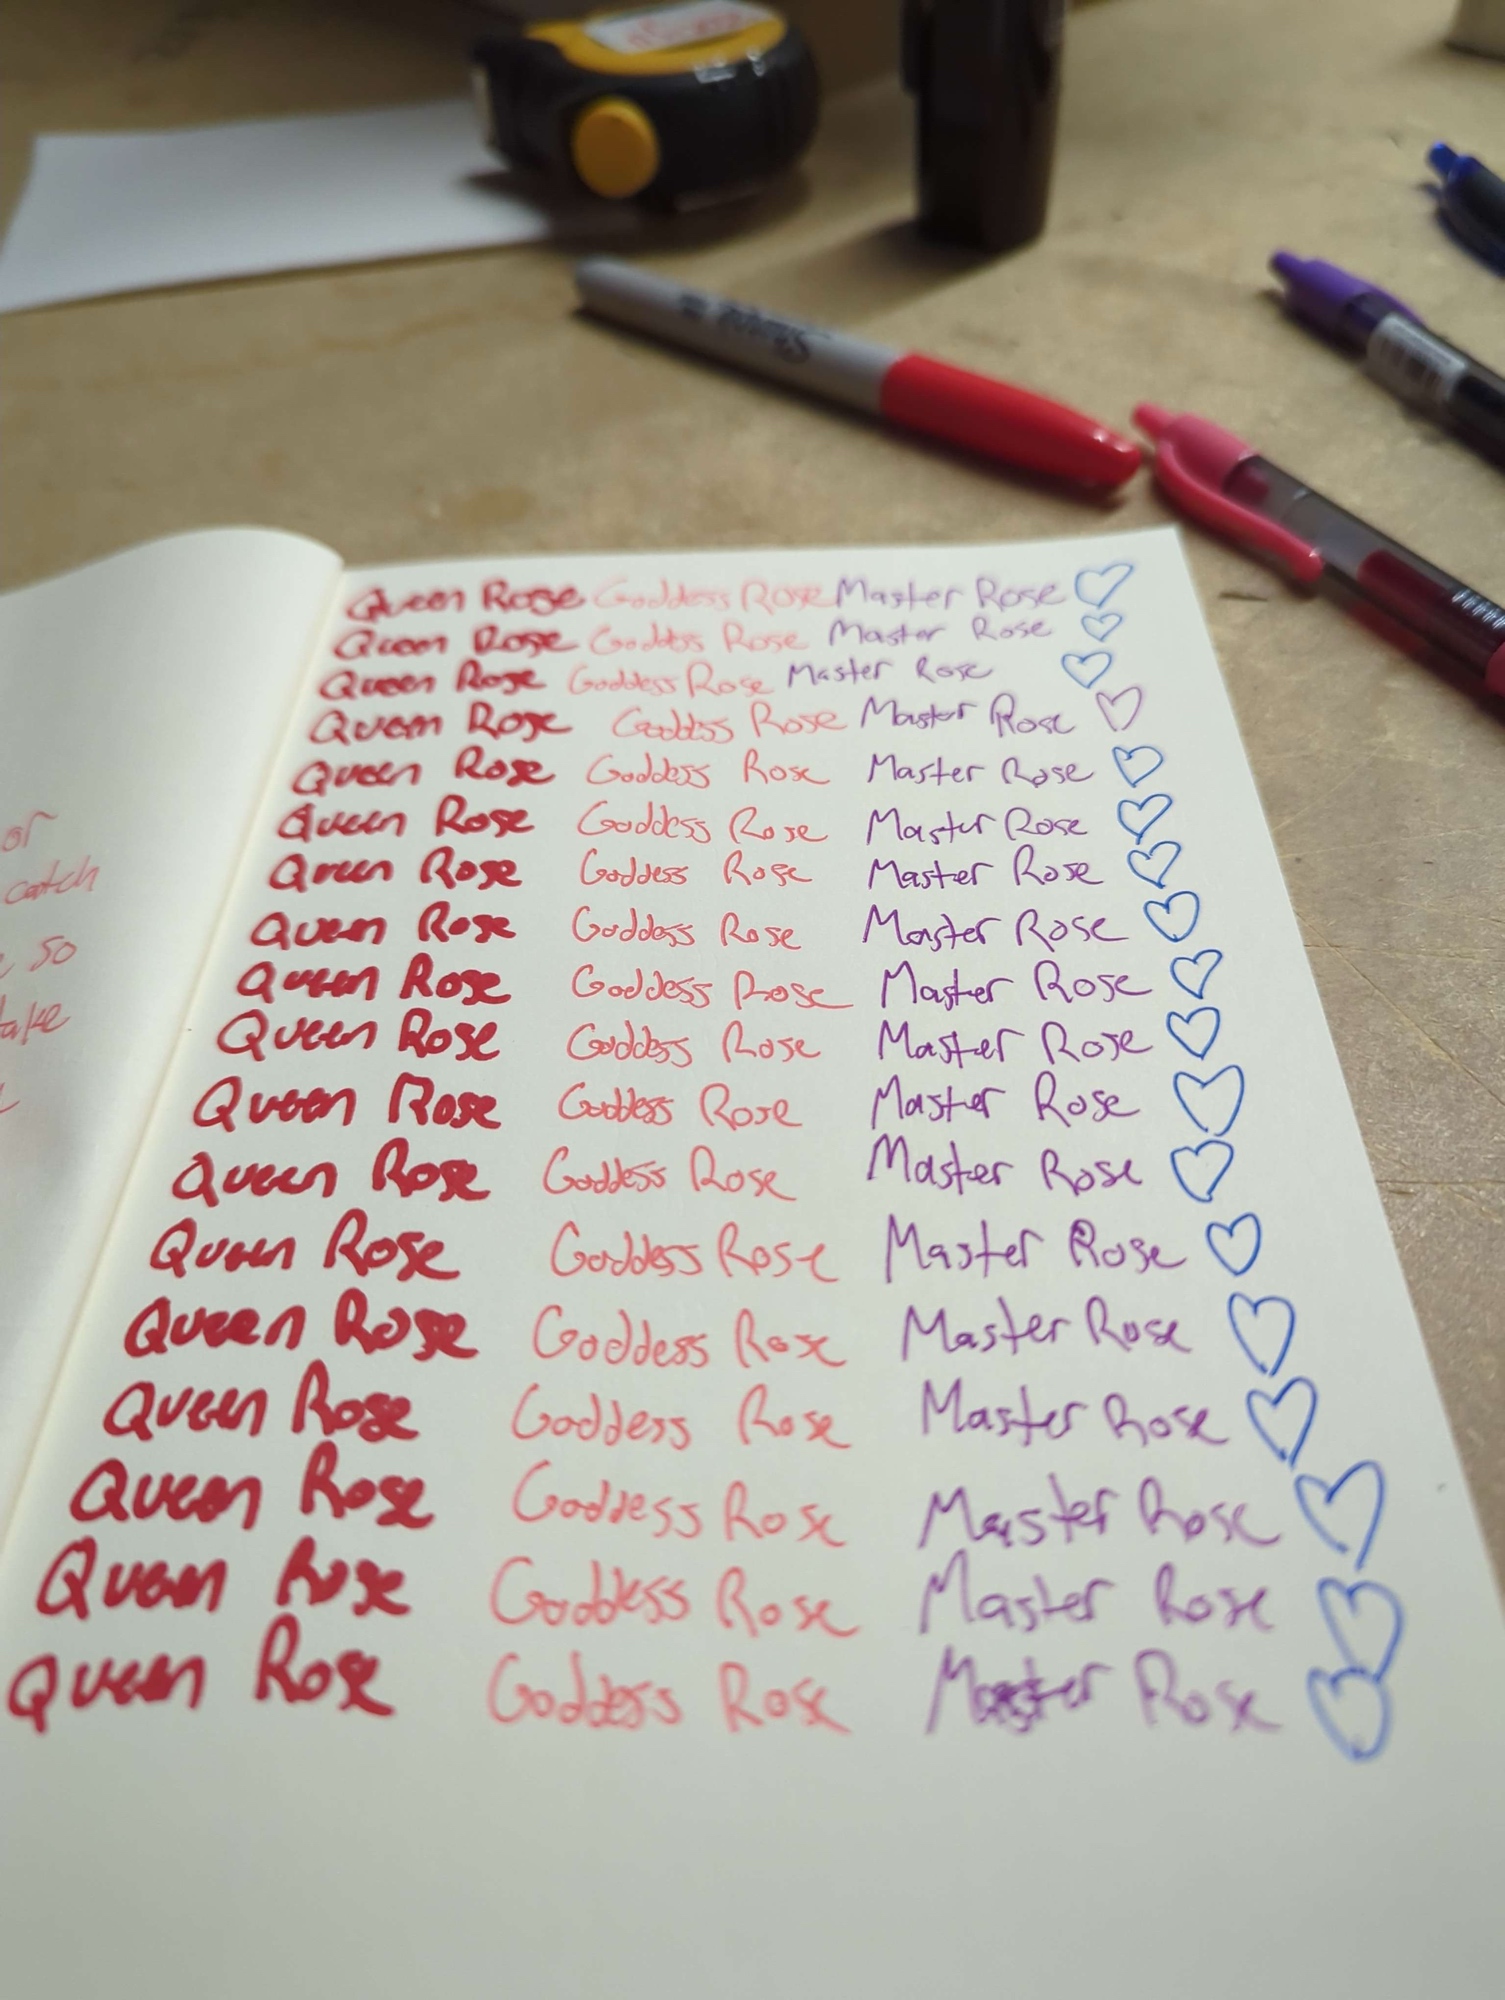 Sharpie
or
catch
so
take
Queen Rose Goddess Rose Master Rose
Queen Rose Goddess Rose Master Rose
Queen Rose Goddess Rose Master Rose
Queen Rose Goddess Rose Master Rose
Queen Rose Goddess Rose Master Rose
Queen Rose Goddess Rose Master Rose
Queen Rose Goddess Rose Master Rose
Queen Rose Goddess Rose Master Rose
Queen Rose Goddess Rose Master Rose
Queen Rose Goddess Rose Master Rose
Queen Rose Goddess Rose Master Rose
Queen Rose Goddess Rose Master Rose
Queen Rose Goddess Rose Master Rose
Queen Rose Goddess Rose Master Rose
Queen Rose Goddess Rose Master Rose
Queen Rose Goddess Rose Master Rose
Queen Rose Goddess Rose Master Rose
Queen Rose Goddess Rose Master Rose